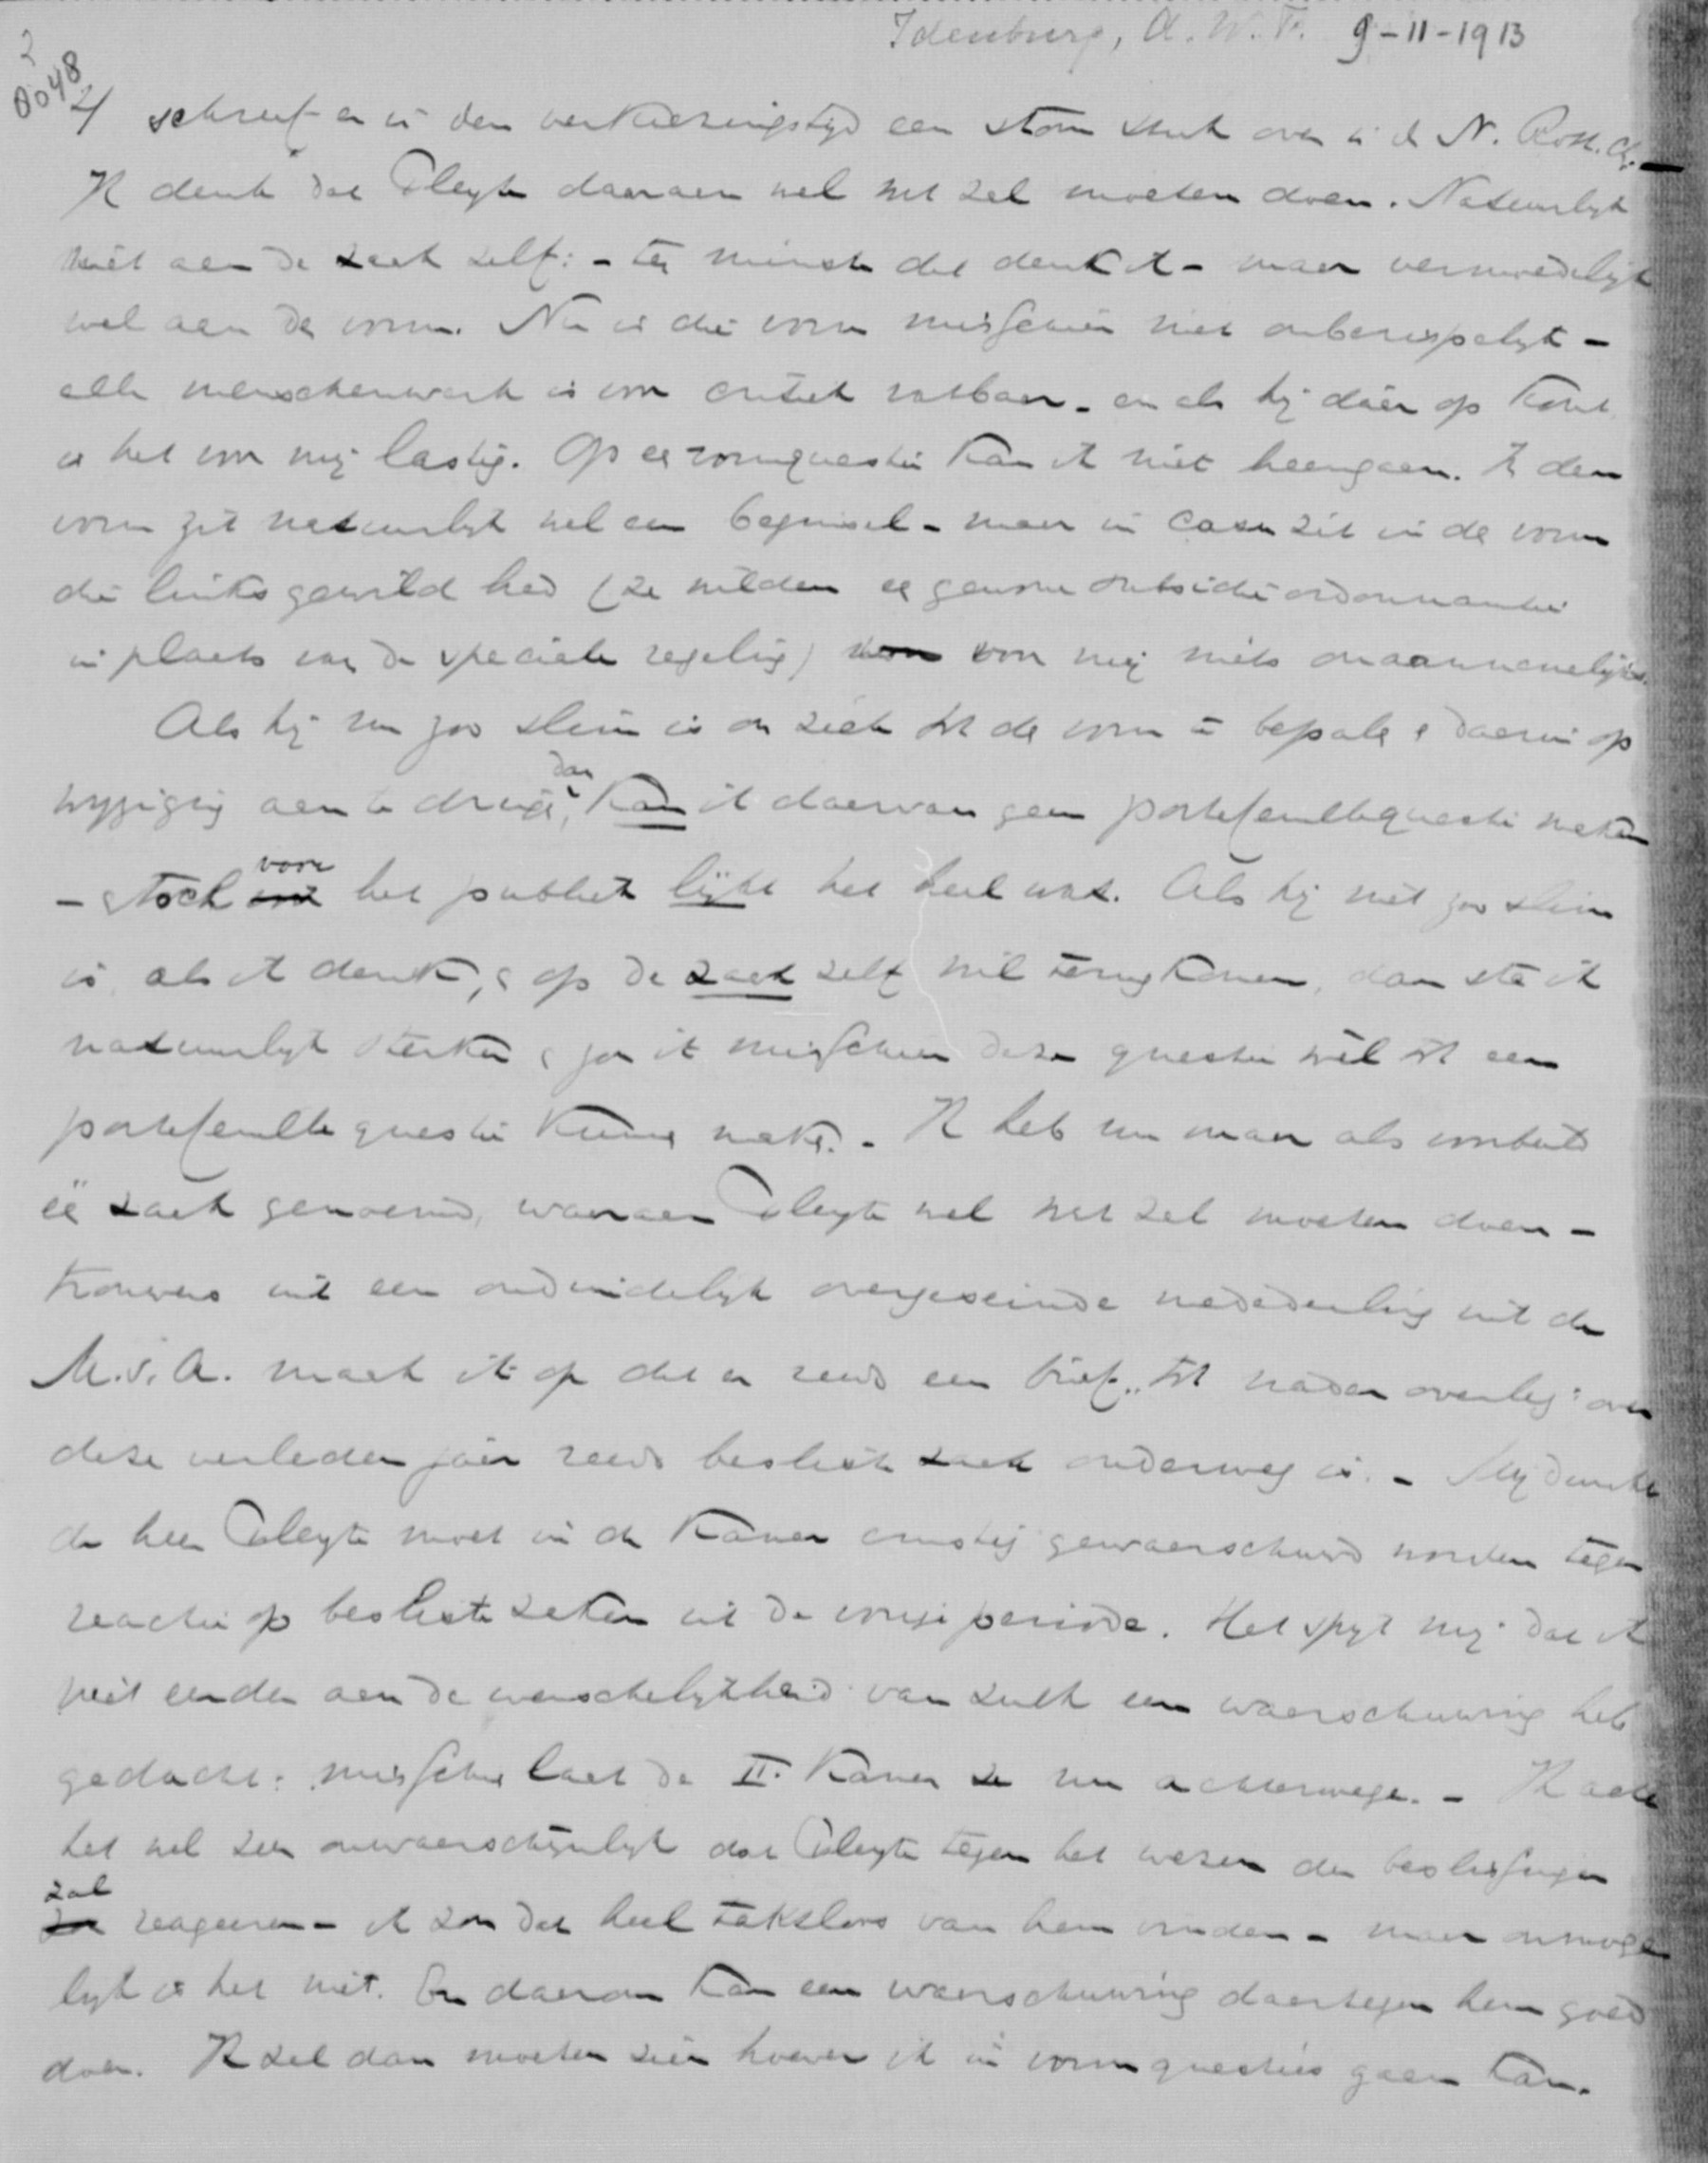 Idenburg, A.W.F. 9-11-1913
2
0048
4/ schreef er in den verkiezingstijd een stom stuk over in de N. Rott. Ct. -
Ik denk dat Pleyte daaraan wel iets zal moeten doen. Natuurlijk
niet aan de zaak zelf: - ten minste dat denk ik - maar vermoedelijk
wel aan den vorm. Nu is die vorm misschien niet onberispelijk -
alle menschenwerk is voor critiek vatbaar - en als hij dáár op komt
is het voor mij lastig. Op een vormquestie kan ik niet heengaan. In den
vorm zit natuurlijk wel een beginsel - maar in casu zit in de vorm
die links gewild had (ze wilden een gewone subsidie ordonnantie
in plaats van de speciale regeling) voor mij niets onaannemelijks.
Als hij nu zoo slim is om zich tot de vorm te bepalen & daarin op
wijziging aan te dringen, dan kan ik daarvan geen portefeuillequestie maken
- & toch voor het publiek lijkt het heel wat. Als hij niet zoo slim
is, als ik denk, & op de zaak zelf wil terugkomen, dan sta ik
natuurlijk sterker & zou ik misschien deze questie wèl tot een
portefeuille questie kunnen maken. - Ik heb nu maar als voorbeeld
één zaak genoemd, waaraan Pleyte wel iets zal moeten doen -
trouwens uit een onduidelijk overgeseinde mededeeling uit de
M.v.A. maak ik op dat er reeds een brief "tot nader overleg" over
deze verleden jaar reeds besliste zaak onderweg is. - Mij dunkt
de heer Pleyte moet in de Kamer ernstig gewaarschuwd worden tegen
reactie op besliste zaken uit de vorige periode. Het spijt mij dat ik
niet eerder aan de wenschelijkheid van zulk een waarschuwing heb
gedacht: misschien laat de II. Kamer ze nu achterwege. - Ik acht
het wel zeer onwaarschijnlijk dat Pleyte tegen het wezen der beslissingen
zal reageeren - ik zou dat heel taktloos van hem vinden - maar onmoge
lijk is het niet. En daarom kan een waarschuwing daartegen hem goed
doen. Ik zal dan moeten zien hoever ik in vormquesties gaan kan.